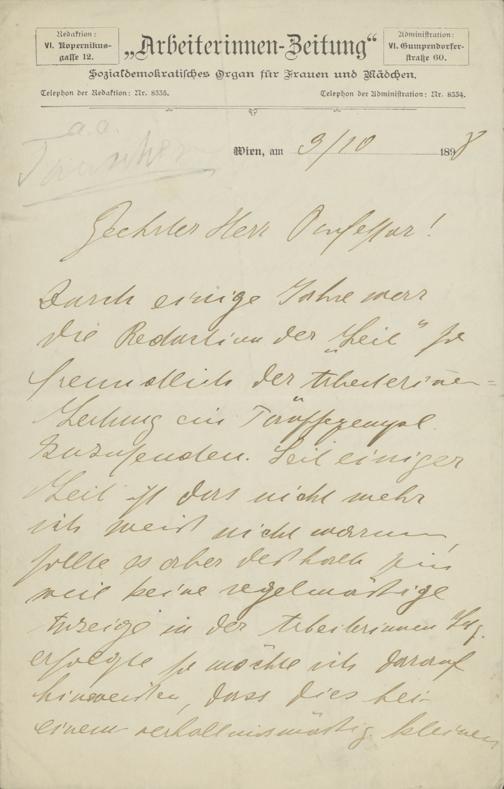 Redaktion:
VI. Kopernikus-
gasse 12.
„Arbeiterinnen-Zeitung“
Administration:
VI. Gumpendorfer-
straße 60.
Sozialdemokratisches Organ für Frauen und Mädchen.
Telephon der Redaktion: Nr. 8335.
Telephon der Administration: Nr. 8334.
a.a.
Wien, am 9/10 1898
Geehrter Herr Professor!
Durch einige Jahre war
die Redaction der „Zeit“ so
freundlich der Arbeiterinen-
Zeitung ein Tauschexempl.
zuzusenden. Seit einiger
Zeit ist das nicht mehr
ich weiß nicht warum,
sollte es aber deshalb sein
weil keine regelmäßige
Anzeige in der Arbeiterinnen Ztg.
erfolgte so möchte ich darauf
hinweisen, dass dies bei
einem verhältnismäßig kleinen